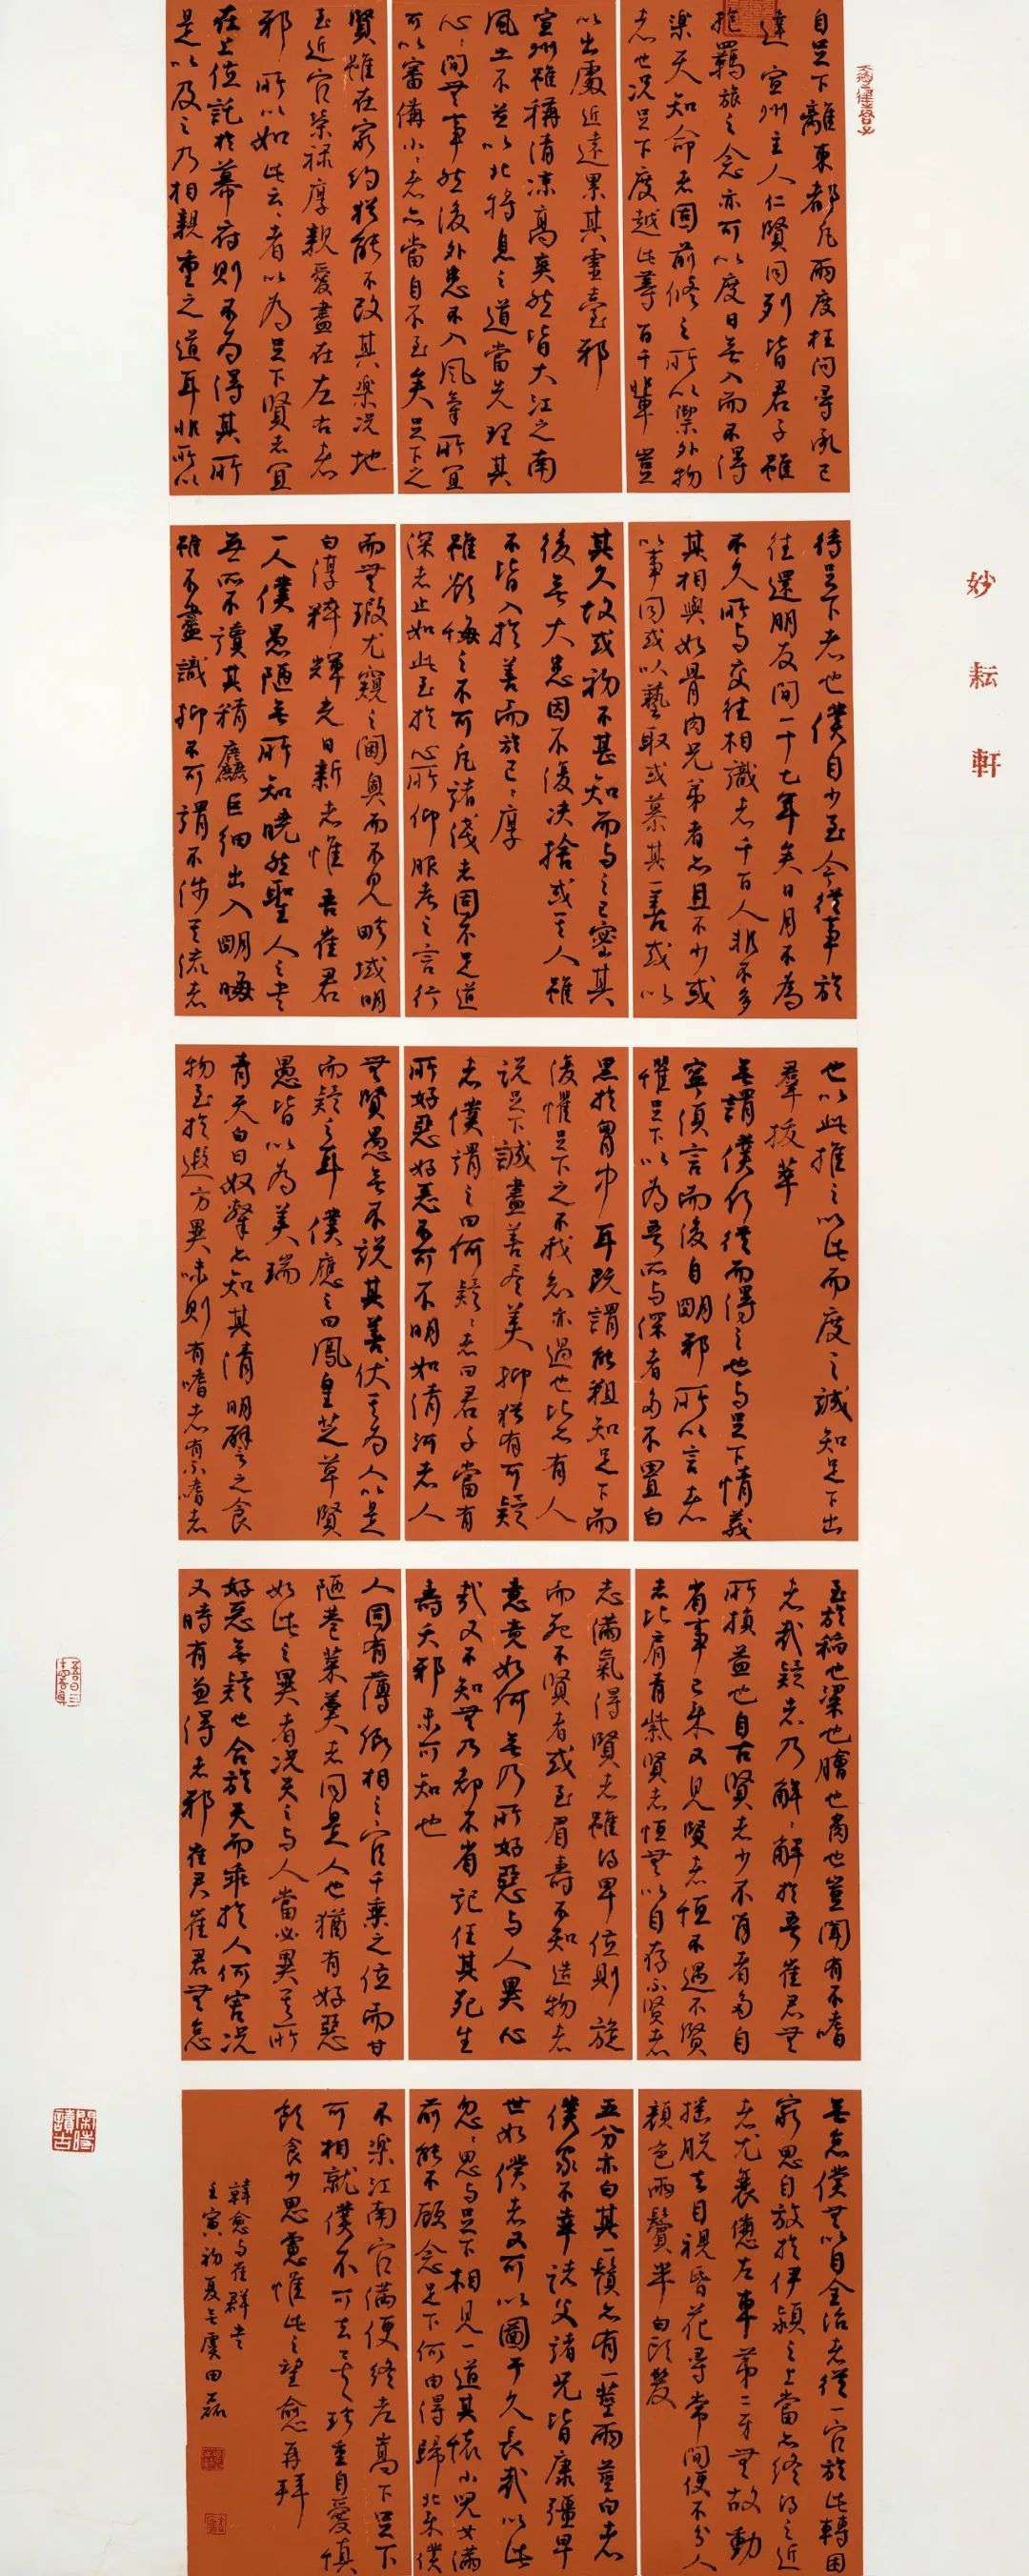 自足下離東都凡兩度枉問尋承已
達宣州主人仁賢同列皆君子雖
抱羈旅之念亦可以度日無入而不得
樂天知命者固前修之所以禦外物
者也況足下度越此等百千輩豈
以出處近遠累其靈臺邪
宣州雖稱清涼高爽然皆大江之南
風土不並以北將息之道當先理其
心〻閒無事然後外患不入風氣所宜
可以審備小〻者亦當自不至矣足下之
賢雖在窮約猶能不改其樂況地
至近官榮祿厚親愛盡在左右者
邪所以如此云〻者以為足下賢者宜
在上位託於幕府則不為得其所
是以及之乃相親重之道耳非所以
待足下者也僕自少至今從事於
往還朋友間一十七年矣日月不為
不久所與交往相識者千百人非不多
其相與如骨肉兄弟者亦且不少或
以事同或以藝取或慕其一善或以
其久故或初不甚知而與之已密其
後無大惡因不復決捨或其人雖
不皆入於善而於己〻厚
雖欲悔之不可凡諸淺者固不足道
深者止如此至於心所仰服考之言行
而無瑕尤窺之閫奧而不見畛域明
白淳粹輝光日新者惟吾崔君
一人僕愚陋無所知曉然聖人之書
無所不讀其精麤巨細出入明晦
雖不盡識抑不可謂不涉其流者
也以此推之以此而度之誠知足下出
羣拔萃
無謂僕何從而得之也與足下情義
寧須言而後自明邪所以言者
懼足下以為吾所與深者多不置白
黑於胷中耳既謂能粗知足下而
復懼足下之不我知亦過也比亦有人
說足下誠盡善盡美抑猶有可疑
者僕謂之曰何疑〻者曰君子當有
所好惡好惡不可不明如清河者人
無賢愚無不說其善伏其為人以是
而疑之耳僕應之曰鳳皇芝草賢
愚皆以為美瑞
青天白日奴隸亦知其清明譬之食
物至於遐方異味則有嗜者有不嗜者
至於稻也粱也膾也炙也豈聞有不嗜
者哉疑者乃解〻解於吾崔君無
所損益也自古賢者少不肖者多自
省事已來又見賢者恒不遇不賢
者比肩青紫賢者恒無以自存不賢者
志滿氣得賢者雖得卑位則旋
而死不賢者或至眉壽不知造物者
意竟如何無乃所好惡與人異心
哉又不知無乃都不省記任其死生
壽夭邪未可知也
人固有薄卿相之官千乘之位而甘
陋巷菜羹者同是人也猶有好惡
如此之異者況天之與人當必異其所
好惡無疑也合於天而乖於人何害況
又時有兼得者邪崔君崔君無怠
無怠僕無以自全活者從一官於此轉困
窮思自放於伊潁之上當亦終得之近
者尤衰憊左車第二牙無故動
搖脫去目視昏花尋常間便不分人
顏色兩鬢半白頭髮
五分亦白其一鬚亦有一莖兩莖白者
僕家不幸諸父諸兄皆康彊早
世如僕者又可以圖于久長哉以此
忽〻思與足下相見一道其懷小兒女滿
前能不顧念足下何由得歸北來僕
不樂江南官滿便終老嵩下足下
可相就僕不可去矣珍重自愛慎
飲食少思慮惟此之望愈再拜
韓愈與崔群書
壬寅初夏無虞田磊
妙耘軒
閑時讀古